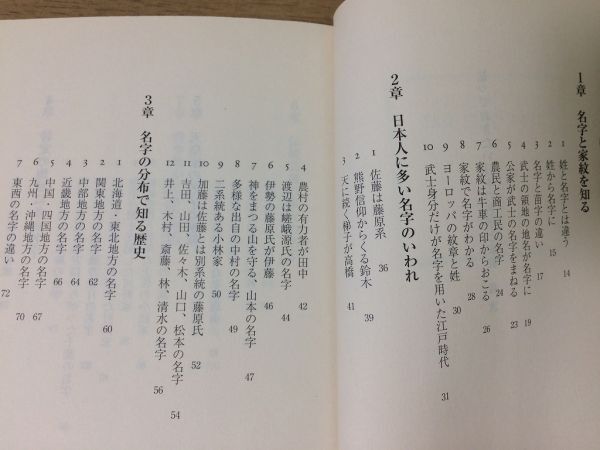 1章 名字と家紋を知る
1 姓と名字とは違う 14
2 姓から名字に 15
3 名字と苗字の違い 17
4 武士の領地の地名が名字に 19
5 公家が武士の名字をまねる 23
6 農民と商工民の名字 24
7 家紋は牛車の印からおこる 26
8 家紋で名字がわかる 28
9 ヨーロッパの紋章と姓 30
10 武士身分だけが名字を用いた江戸時代 31
2章 日本人に多い名字のいわれ
1 佐藤は藤原系 36
2 熊野信仰からくる鈴木 39
3 天に続く梯子が高橋 41
4 農村の有力者が田中 42
5 渡辺は嵯峨源氏の名字 44
6 伊勢の藤原氏が伊藤 46
7 神をまつる山を守る、山本の名字 47
8 多様な出自の中村の名字 49
9 二系統ある小林家 50
10 加藤は佐藤とは別系統の藤原氏 52
11 吉田、山田、佐々木、山口、松本の名字 54
12 井上、木村、斎藤、林、清水の名字 56
3章 名字の分布で知る歴史
1 北海道・東北地方の名字 60
2 関東地方の名字 62
3 中部地方の名字 64
4 近畿地方の名字 66
5 中国・四国地方の名字 67
6 九州・沖縄地方の名字 70
7 東西の名字の違い 72